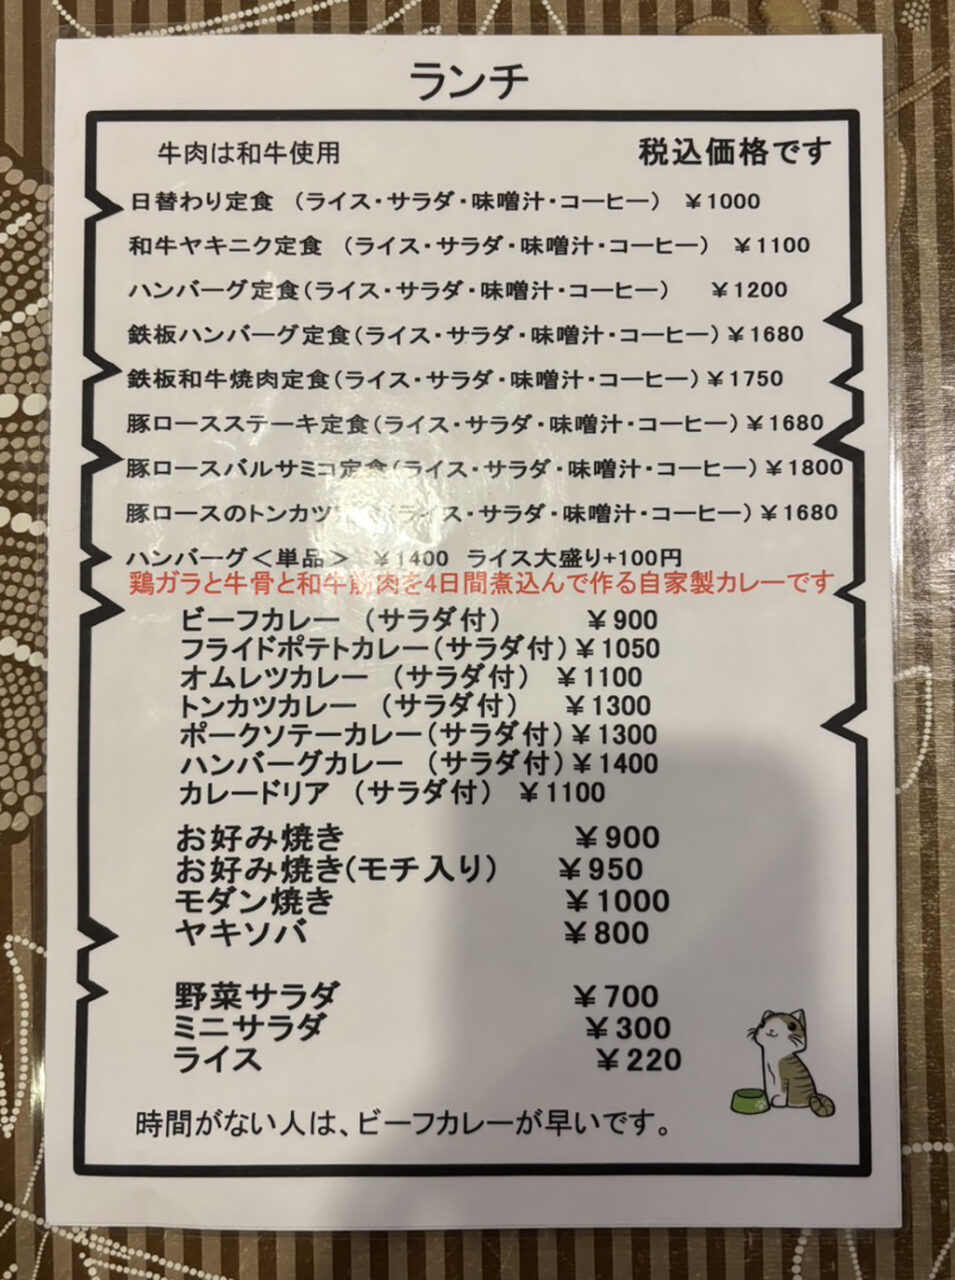 ランチ
牛肉は和牛使用 税込価格です
日替わり定食 （ライス・サラダ・味噌汁・コーヒー） ￥1000
和牛ヤキニク定食 （ライス・サラダ・味噌汁・コーヒー） ￥1100
ハンバーグ定食（ライス・サラダ・味噌汁・コーヒー） ￥1200
鉄板ハンバーグ定食（ライス・サラダ・味噌汁・コーヒー）￥1680
鉄板和牛焼肉定食（ライス・サラダ・味噌汁・コーヒー）￥1750
豚ロースステーキ定食（ライス・サラダ・味噌汁・コーヒー）￥1680
豚ロースバルサミコ定食（ライス・サラダ・味噌汁・コーヒー）￥1800
豚ロースのトンカツ（ライス・サラダ・味噌汁・コーヒー）￥1680
ハンバーグ＜単品＞ ￥1400 ライス大盛り+100円
鶏ガラと牛骨と和牛筋肉を4日間煮込んで作る自家製カレーです
ビーフカレー （サラダ付） ￥900
フライドポテトカレー（サラダ付）￥1050
オムレツカレー （サラダ付） ￥1100
トンカツカレー （サラダ付） ￥1300
ポークソテーカレー（サラダ付）￥1300
ハンバーグカレー （サラダ付）￥1400
カレードリア （サラダ付） ￥1100
お好み焼き ￥900
お好み焼き（モチ入り） ￥950
モダン焼き ￥1000
ヤキソバ ￥800
野菜サラダ ￥700
ミニサラダ ￥300
ライス ￥220
時間がない人は、ビーフカレーが早いです。